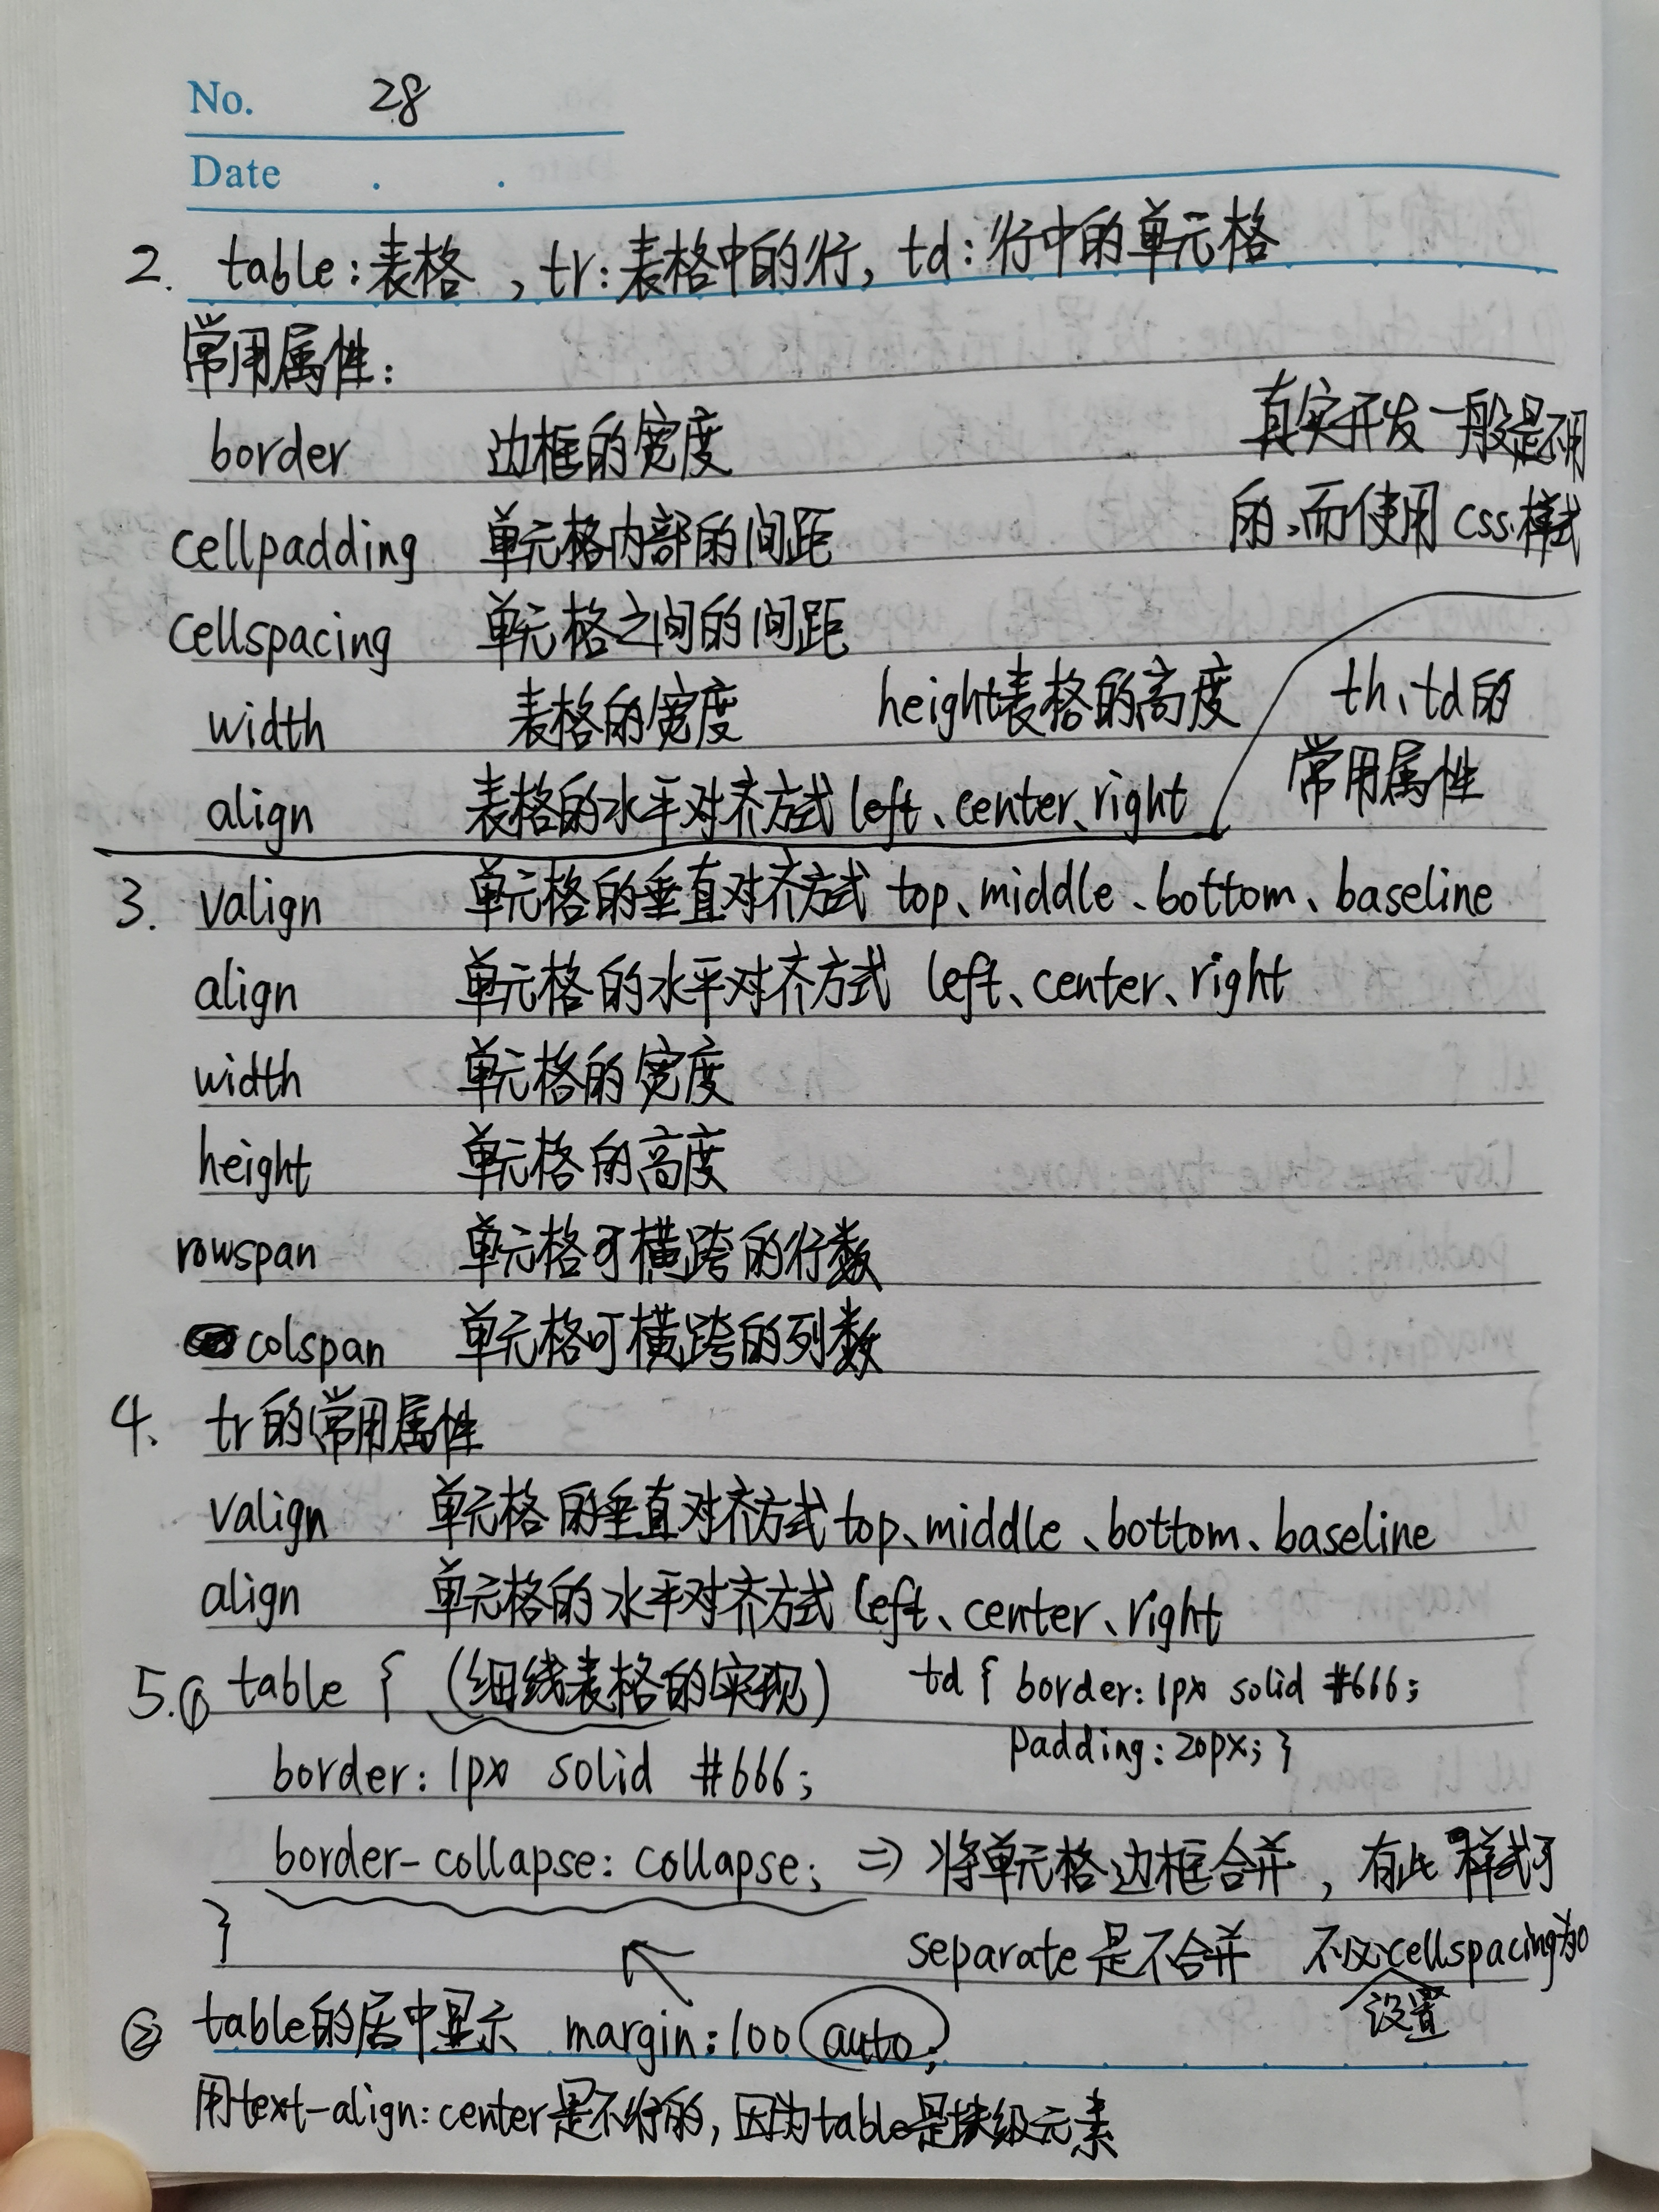 No. 28
Date . .
2. table:表格,tr:表格中的行,td:行中的单元格
常用属性:
border 边框的宽度
真实开发一般是不用
的,而使用css样式
cellpadding 单元格内部的间距
cellspacing 单元格之间的间距
width 表格的宽度 height表格的高度
align 表格的水平对齐方式 left、center、right
th、td的
常用属性
3. valign 单元格的垂直对齐方式 top、middle、bottom、baseline
align 单元格的水平对齐方式 left、center、right
width 单元格的宽度
height 单元格的高度
rowspan 单元格可横跨的行数
colspan 单元格可横跨的列数
4、tr的常用属性
valign 单元格的垂直对齐方式 top、middle、bottom、baseline
align 单元格的水平对齐方式 left、center、right
5.① table { (细线表格的实现) td { border: 1px solid #666;
padding: 20px; }
border: 1px solid #666;
border-collapse: collapse; => 将单元格边框合并,有此样式了
} separate是不合并 不必设置cellspacing为0
② table的居中显示 margin:100 auto;
用text-align:center是不行的,因为table是块级元素